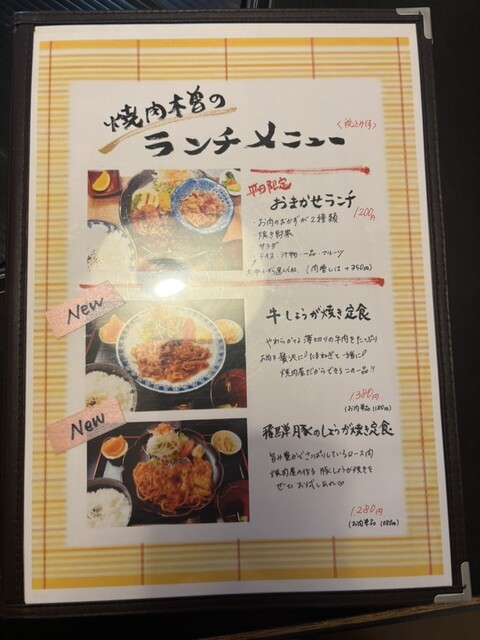 焼肉木曽の
ランチメニュー
〈税込み価格〉
平日限定
おまかせランチ
1200円
・お肉のおかず2種類
焼き野菜
サラダ
・ライス・汁物・一品・フルーツ
(肉増しは +350円)
New
牛しょうが焼き定食
やわらかな薄切りの牛肉をたっぷり
お肉を贅沢に!たまねぎと一緒に!
焼肉屋だからできるこの一品!!
1,380円
(お肉単品 1180円)
New
飛騨豚のしょうが焼き定食
旨み豊かでさっぱりしているロース肉
焼肉屋の作る 豚しょうが焼きを
ぜひ お試しあれ♡
1,280円
(お肉単品 1080円)